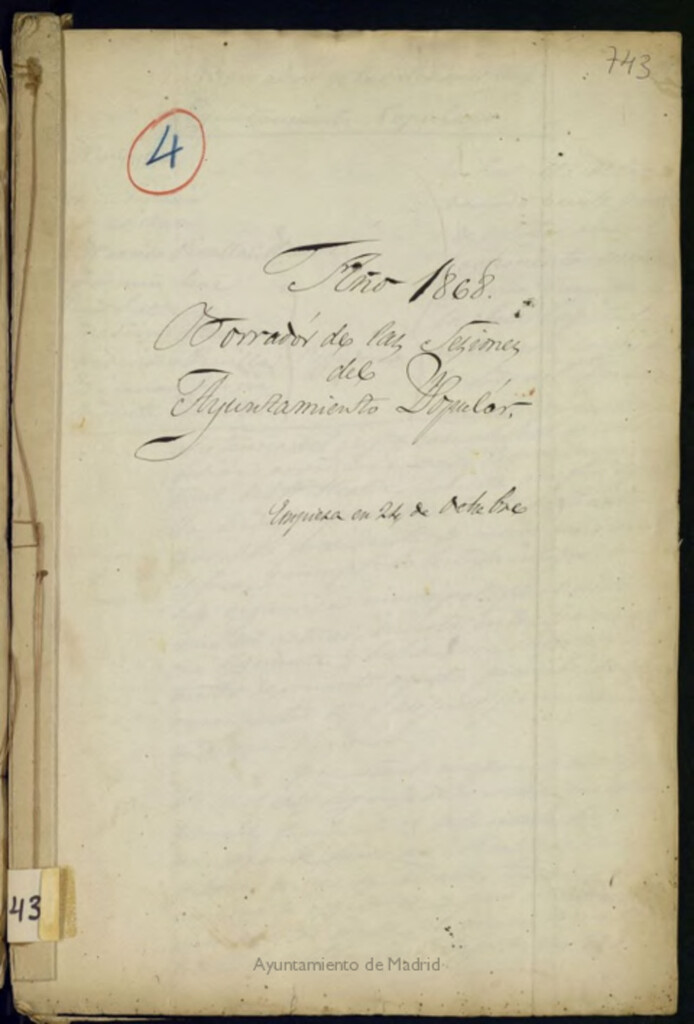 743
4
Año 1868.
Borrador de las Sesiones
del
Ayuntamiento Populár.
Empieza en 24 de Octubre
43
Ayuntamiento de Madrid